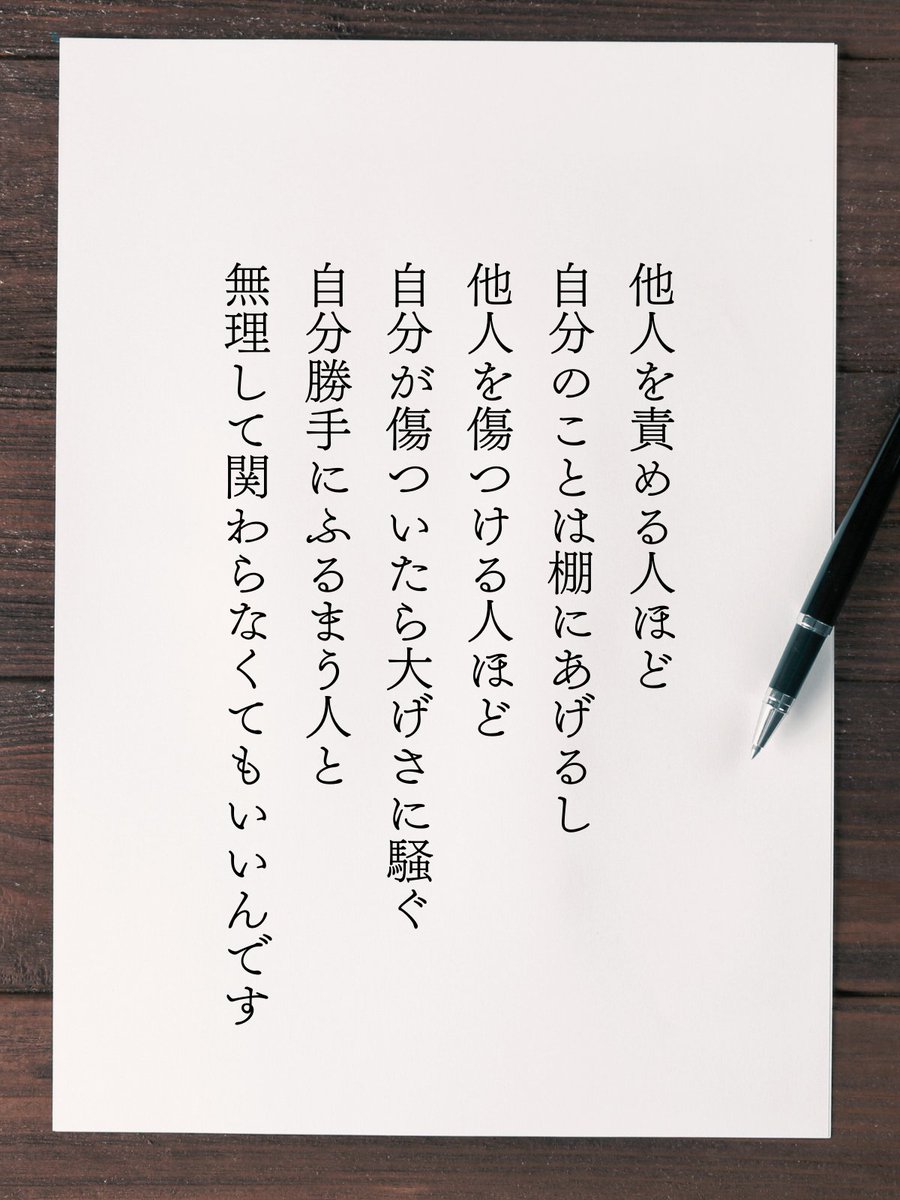 他人を責める人ほど
自分のことは棚にあげるし
他人を傷つける人ほど
自分が傷ついたら大げさに騒ぐ
自分勝手にふるまう人と
無理して関わらなくてもいいんです